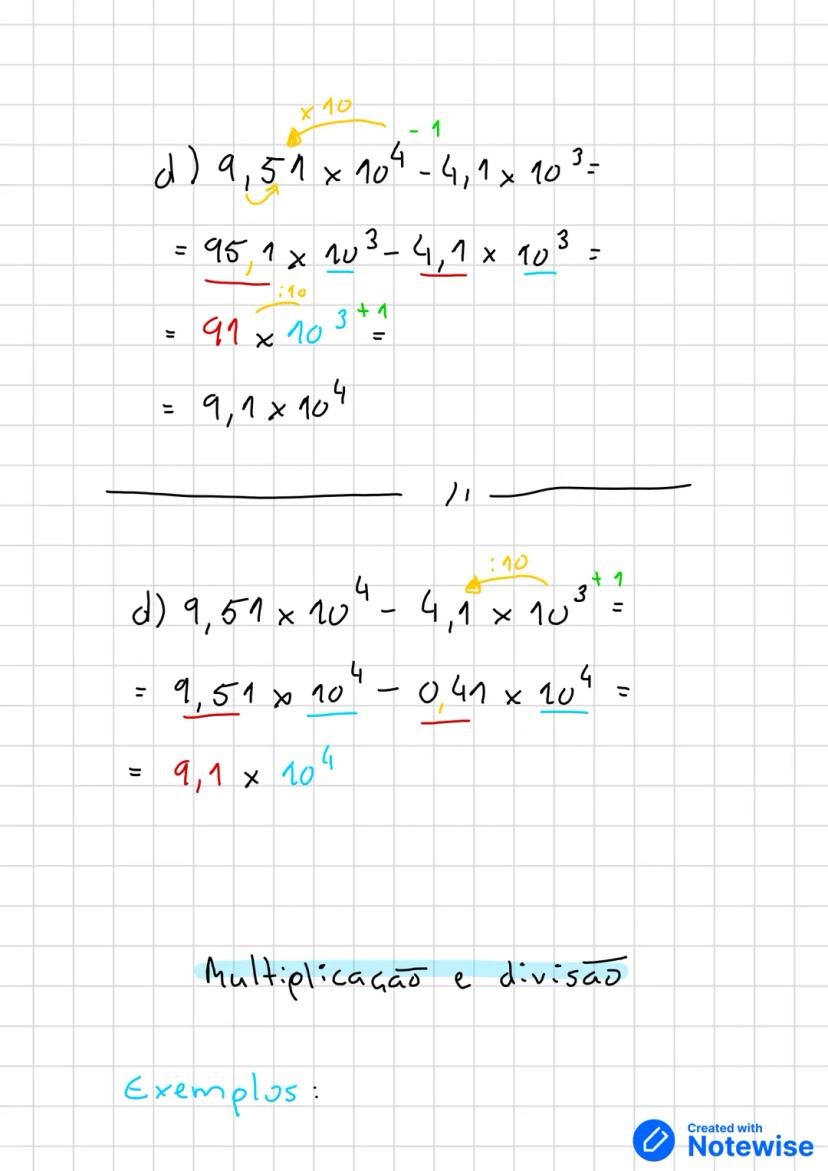 x 10
- 1
d) 9,51 x 10⁴ - 4,1 x 10³ =
= 95,1 x 10³ - 4,1 x 10³ =
:10
= 91 x 10³ + 1 =
= 9,1 x 10⁴
//
:10
+ 1
d) 9,51 x 10⁴ - 4,1 x 10³ =
= 9,51 x 10⁴ - 0,41 x 10⁴ =
= 9,1 x 10⁴
Multiplicação e divisão
Exemplos:
Created with
Notewise